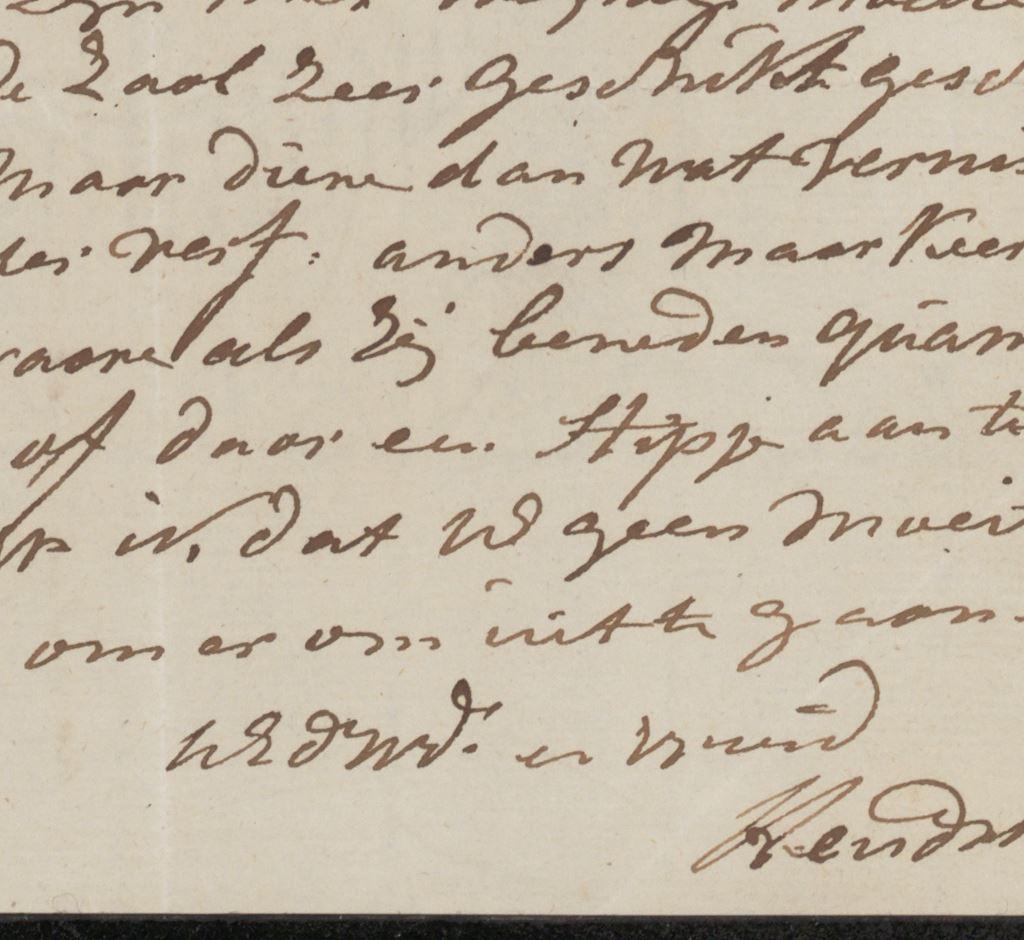 de Zaal Zeer geschikt
maar diene dan wat vernis
verf: anders maar Keer
als Zij beneden quam
of daar een Stipje aan te
is, dat UE geen moei
om er om uit te gaan.
UEdWd. en vriend
Hendr